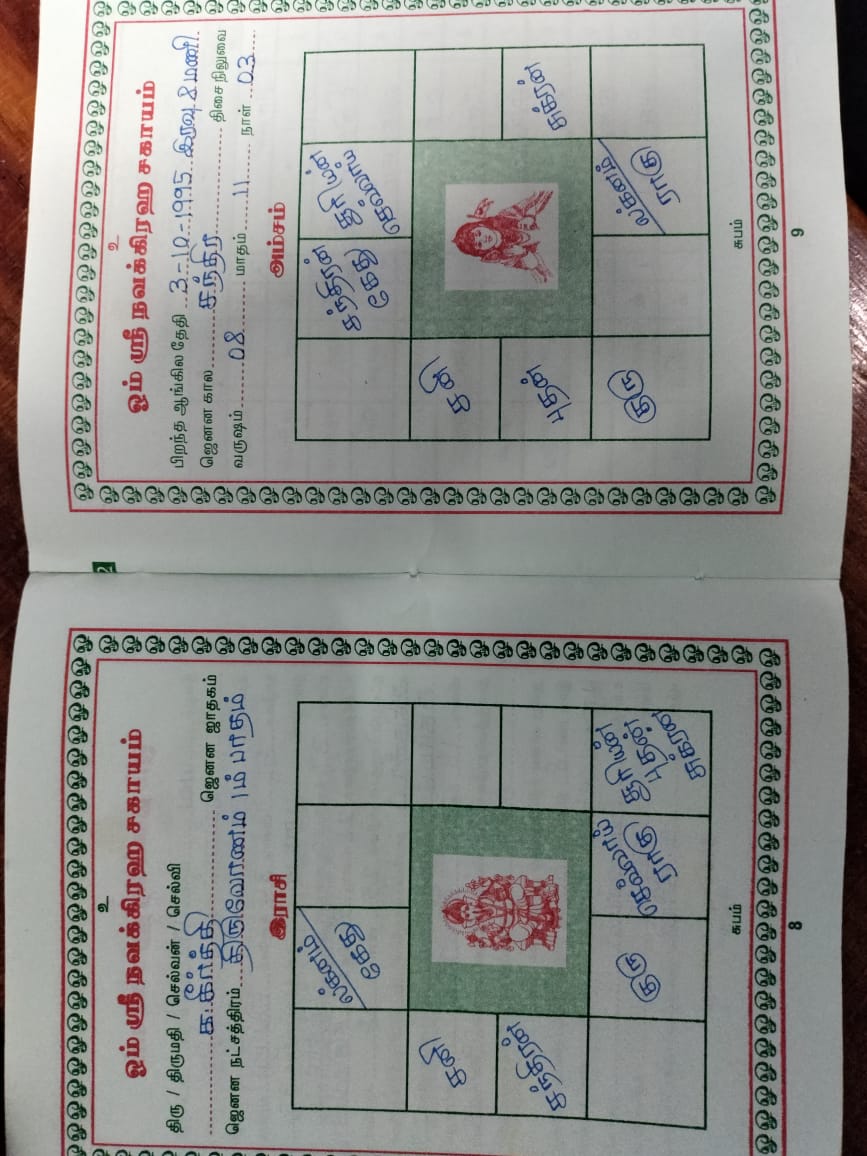 உ
ஓம் ஸ்ரீ நவக்கிரஹ சகாயம்
திரு / திருமதி / செல்வன் / செல்வி
க. கீர்த்தி ஜெனன ஜாதகம்
ஜெனன நட்சத்திரம் திருவோணம் 1ம் பாதம்
இராசி
லக்னம்
கேது
சனி
சந்திரன்
குரு
செவ்வாய்
ராகு
சூரியன்
புதன்
சுக்ரன்
சுபம்
8
2
உ
ஓம் ஸ்ரீ நவக்கிரஹ சகாயம்
பிறந்த ஆங்கில தேதி 3-10-1995 இரவு 8 மணி
ஜெனன கால சந்திர திசை நிலுவை
வருஷம் 08 மாதம் 11 நாள் 03
அம்சம்
சந்திரன்
கேது
சூரியன்
செவ்வாய்
சனி
புதன்
சுக்ரன்
குரு
லக்னம்
ராகு
சுபம்
9